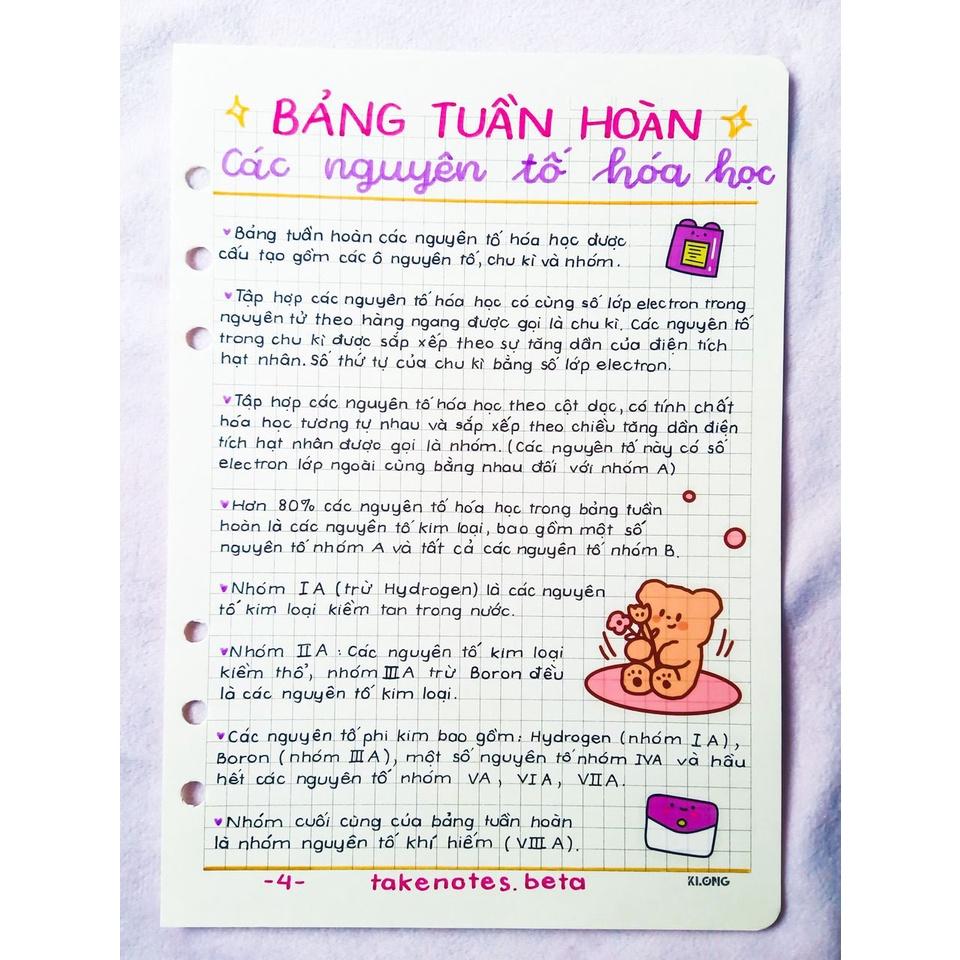 BẢNG TUẦN HOÀN
Các nguyên tố hóa học
Bảng tuần hoàn các nguyên tố hóa học được
cấu tạo gồm các ô nguyên tố, chu kì và nhóm.
Tập hợp các nguyên tố hóa học có cùng số lớp electron trong
nguyên tử theo hàng ngang được gọi là chu kì. Các nguyên tố
trong chu kì được sắp xếp theo sự tăng dần của điện tích
hạt nhân. Số thứ tự của chu kì bằng số lớp electron.
Tập hợp các nguyên tố hóa học theo cột dọc, có tính chất
hóa học tương tự nhau và sắp xếp theo chiều tăng dần điện
tích hạt nhân được gọi là nhóm. (Các nguyên tố này có số
electron lớp ngoài cùng bằng nhau đối với nhóm A)
Hơn 80% các nguyên tố hóa học trong bảng tuần
hoàn là các nguyên tố kim loại, bao gồm một số
nguyên tố nhóm A và tất cả các nguyên tố nhóm B.
Nhóm IA (trừ Hydrogen) là các nguyên
tố kim loại kiềm tan trong nước.
Nhóm IIA: Các nguyên tố kim loại
kiềm thổ, nhóm IIIA trừ Boron đều
là các nguyên tố kim loại.
Các nguyên tố phi kim bao gồm: Hydrogen (nhóm IA),
Boron (nhóm IIIA), một số nguyên tố nhóm IVA và hầu
hết các nguyên tố nhóm VA, VIA, VIIA.
Nhóm cuối cùng của bảng tuần hoàn
là nhóm nguyên tố khí hiếm (VIIIA).
-4- takenotes.beta KLONG